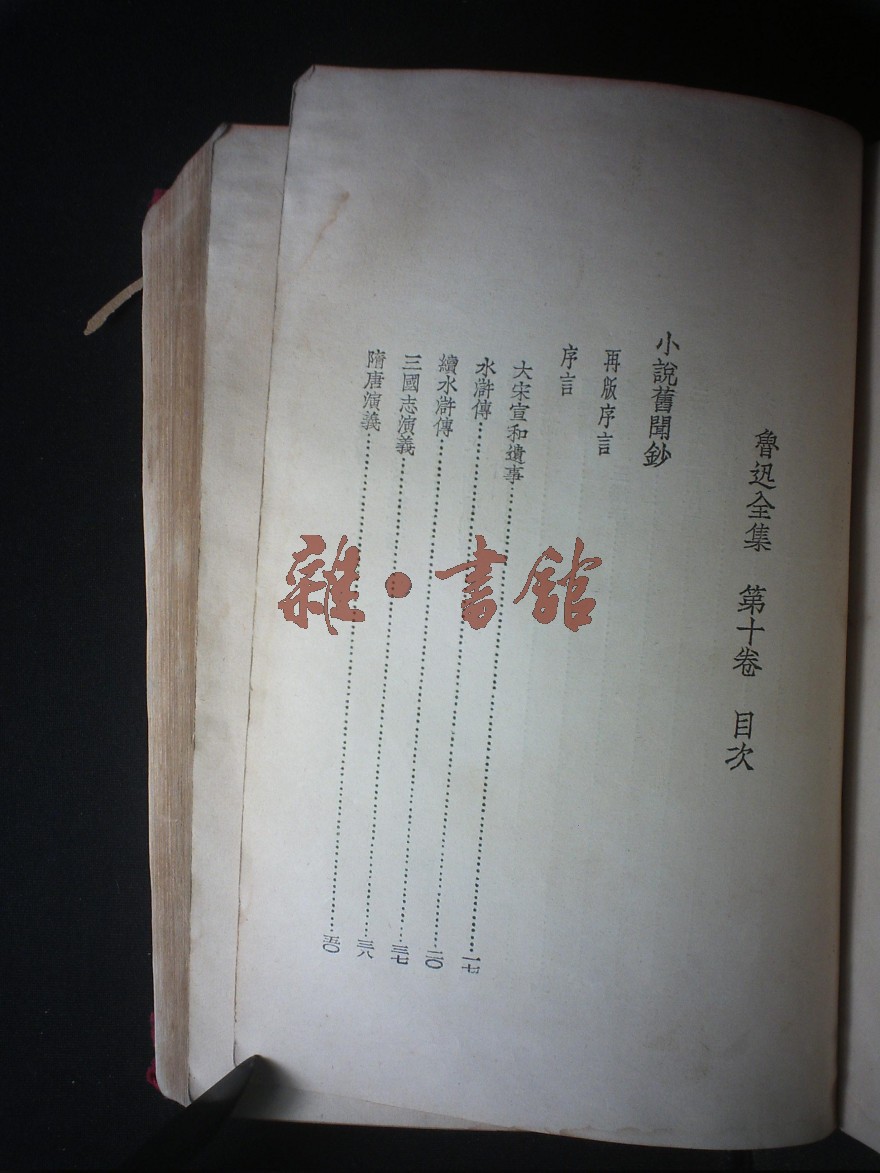 魯迅全集　第十卷　目次
小說舊聞鈔
再版序言
序言
大宋宣和遺事 一七
水滸傳 二〇
續水滸傳 三七
三國志演義 三八
隋唐演義 五〇
雜·書館